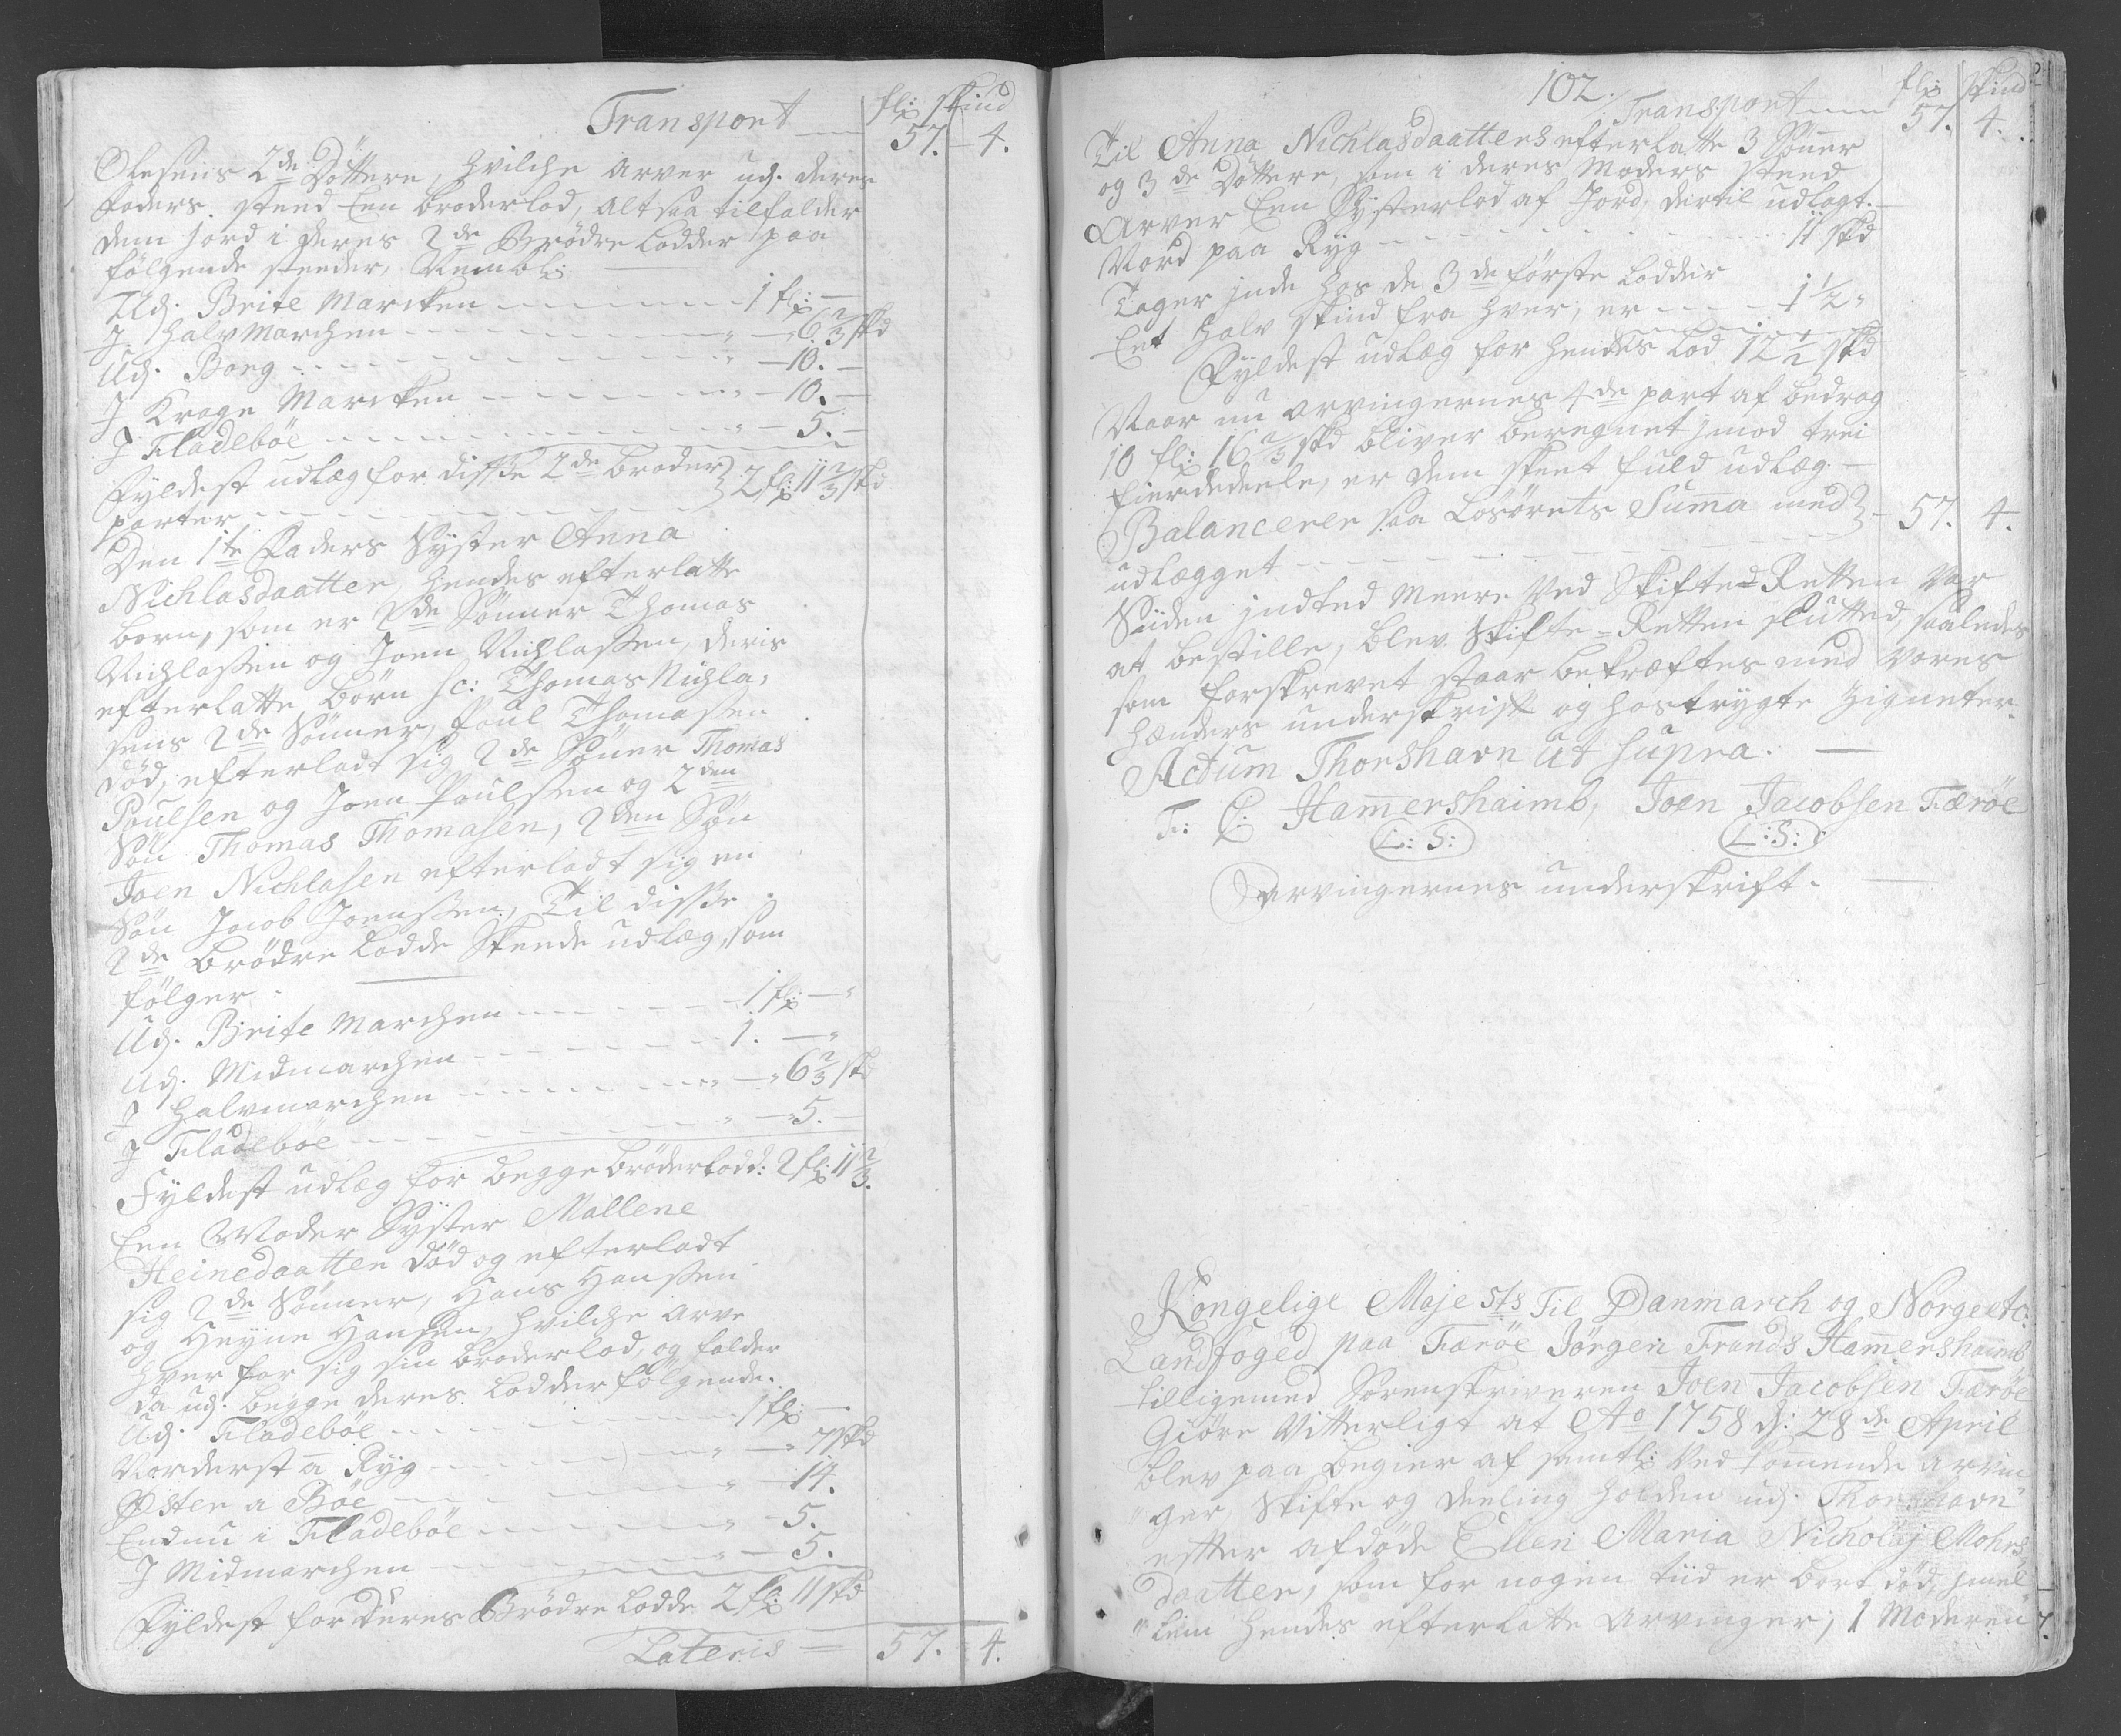 fl: skind
Transport — 57. — 4.
Olesens 2de Döttere, hvilche arver udj. deres
Faders steed Een Broderlod, altsaa tilfalder
dem Jord i deres 2de Brödre Lodder paa
fölgende steeder, Nembl:
Udj. Breite Marcken — 1 fl: —
J. halvMarchen — " — 6 2/3 skd
Udj. Borg — " — 10. —
J Krage Marcken — " — 10. —
J Fladeböe — " — 5. —
Fyldest udlæg for disse 2de Broder
parter — 2 fl: 11 2/3 skd
Den 1te Faders Syster Anna
Nichlasdaatter, hendes efterlatte
born, som er 2de Sönner Thomas
Nichlassen og Joen Nichlassen, deris
efterlatte börn sc: Thomas Nichla-
sens 2de Sönner, Poul Thomassen
död, efterladt sig 2de Söner Thomas
Poulsen og Joen Poulssen og 2den
Sön Thomas Thomasen, 2den Sön
Joen Nichlasen efterladt sig en
Sön Jacob Joenssen, Til disse
2de Brödre Lodde Skeede udlæg, som
fölger.
Udj. Breite Marchen — 1 fl: — "
Udj. Midmarchen — 1. — "
J halvmarchen — " — 6 2/3 skd
J Fladebøe — " — 5. —
Fyldest udlæg for begge bröderlodd: 2 fl: 11 2/3.
Een Moder Syster Mallene
Heinedaatter död og efterladt
sig 2de Sönner, Hans Hanssen
og Heyne Hansen, hvilche arve
hver for sig sin broderlod, og falder
da udj. begge deres Lodder fölgende.
Udj. Fladebøe — 1 fl: —
Norderst a Ryg — " — 7 skd
Öster a Böe — " — 14.
Endnu i Fladebøe — " — 5.
J Midmarchen — " — 5.
Fyldest for deres Brödre Lodde 2 fl: 11 skd
Lateris = 57. = 4.
102. fl: skind
Transport — 57. 4.
Til Anna Nichlasdaatters efterlatte 3 Sönner
og 3de Döttere, som i deres Moders steed
Arver Een Systerlod af Jord, dertil udlagt.
Nord paa Ryg — 11 skd
Tager inde hos de 3de förste Lodder
Eet halv skind fra hver, er — 1 1/2 "
Fyldest udlæg for hendes Lod 12 1/2 skd
Naar nu arvingernes 4de part af bedrag
10 fl: 16 2/3 skd bliver beregnet jmod trei
fierdedeele, er dem skeet fuld udlæg. —
Balancerer saa Lösörets Suma med
udlægget — 57. 4.
Siiden jndted Meere Ved Skifte-Retten Var
at bestille, blev Skifte-Retten sluttet, saaledes
som forskrevet staar bekræftes med Vores
hænders underskrift og hostrygte Zigneter.
Actum Thorshavn Ut supra. —
F: C: Hamershaimb, Joen Jacobsen Færöe
L: S: L: S:
Arvingernes underskrift. —
Kongelige Maje sts Til Danmarch og Norge etc:
Landfoged paa Færöe Jörgen Frands Hamershaimb
tilligemed Sorenskriveren Joen Jacobsen Færöe
Giöre Vitterligt at Ao 1758 d: 28de April
blev paa Begier af samtl: Ved kommende arvin
ger, Skifte og deeling holden udj. Thorshavn
efter afdöde Ellen Maria Nicholaj Mohrs
daatter, som for nogen tiid er bort död, imel
lem hendes efterlatte arvinger, 1 Moderen